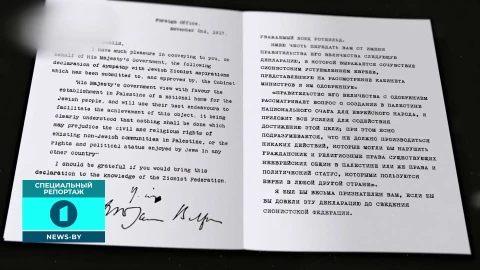 Foreign Office,
November 2nd, 1917.
I have much pleasure in conveying to you, on
behalf of His Majesty's Government, the following
declaration of sympathy with Jewish Zionist aspirations
which has been submitted to, and approved by, the Cabinet
"His Majesty's Government view with favour the
establishment in Palestine of a national home for the
Jewish people, and will use their best endeavours to
facilitate the achievement of this object, it being
clearly understood that nothing shall be done which
may prejudice the civil and religious rights of
existing non-Jewish communities in Palestine, or the
rights and political status enjoyed by Jews in any
other country"
I should be grateful if you would bring this
declaration to the knowledge of the Zionist Federation.
УВАЖАЕМЫЙ ЛОРД РОТШИЛЬД.
ИМЕЮ ЧЕСТЬ ПЕРЕДАТЬ ВАМ ОТ ИМЕНИ
ПРАВИТЕЛЬСТВА ЕГО ВЕЛИЧЕСТВА СЛЕДУЮЩУЮ
ДЕКЛАРАЦИЮ, В КОТОРОЙ ВЫРАЖАЕТСЯ СОЧУВСТВИЕ
СИОНИСТСКИМ УСТРЕМЛЕНИЯМ ЕВРЕЕВ,
ПРЕДСТАВЛЕННУЮ НА РАССМОТРЕНИЕ КАБИНЕТА
МИНИСТРОВ И ИМ ОДОБРЕННУЮ:
«ПРАВИТЕЛЬСТВО ЕГО ВЕЛИЧЕСТВА С ОДОБРЕНИЕМ
РАССМАТРИВАЕТ ВОПРОС О СОЗДАНИИ В ПАЛЕСТИНЕ
НАЦИОНАЛЬНОГО ОЧАГА ДЛЯ ЕВРЕЙСКОГО НАРОДА, И
ПРИЛОЖИТ ВСЕ УСИЛИЯ ДЛЯ СОДЕЙСТВИЯ
ДОСТИЖЕНИЮ ЭТОЙ ЦЕЛИ; ПРИ ЭТОМ ЯСНО
ПОДРАЗУМЕВАЕТСЯ, ЧТО НЕ ДОЛЖНО ПРОИЗВОДИТЬСЯ
НИКАКИХ ДЕЙСТВИЙ, КОТОРЫЕ МОГЛИ БЫ НАРУШИТЬ
ГРАЖДАНСКИЕ И РЕЛИГИОЗНЫЕ ПРАВА СУЩЕСТВУЮЩИХ
НЕЕВРЕЙСКИХ ОБЩИН В ПАЛЕСТИНЕ ИЛИ ЖЕ ПРАВА И
ПОЛИТИЧЕСКИЙ СТАТУС, КОТОРЫМИ ПОЛЬЗУЮТСЯ
ЕВРЕИ В ЛЮБОЙ ДРУГОЙ СТРАНЕ».
Я БЫЛ БЫ ВЕСЬМА ПРИЗНАТЕЛЕН ВАМ, ЕСЛИ БЫ
ВЫ ДОВЕЛИ ЭТУ ДЕКЛАРАЦИЮ ДО СВЕДЕНИЯ
СИОНИСТСКОЙ ФЕДЕРАЦИИ.
СПЕЦИАЛЬНЫЙ
РЕПОРТАЖ
1
NEWS-BY